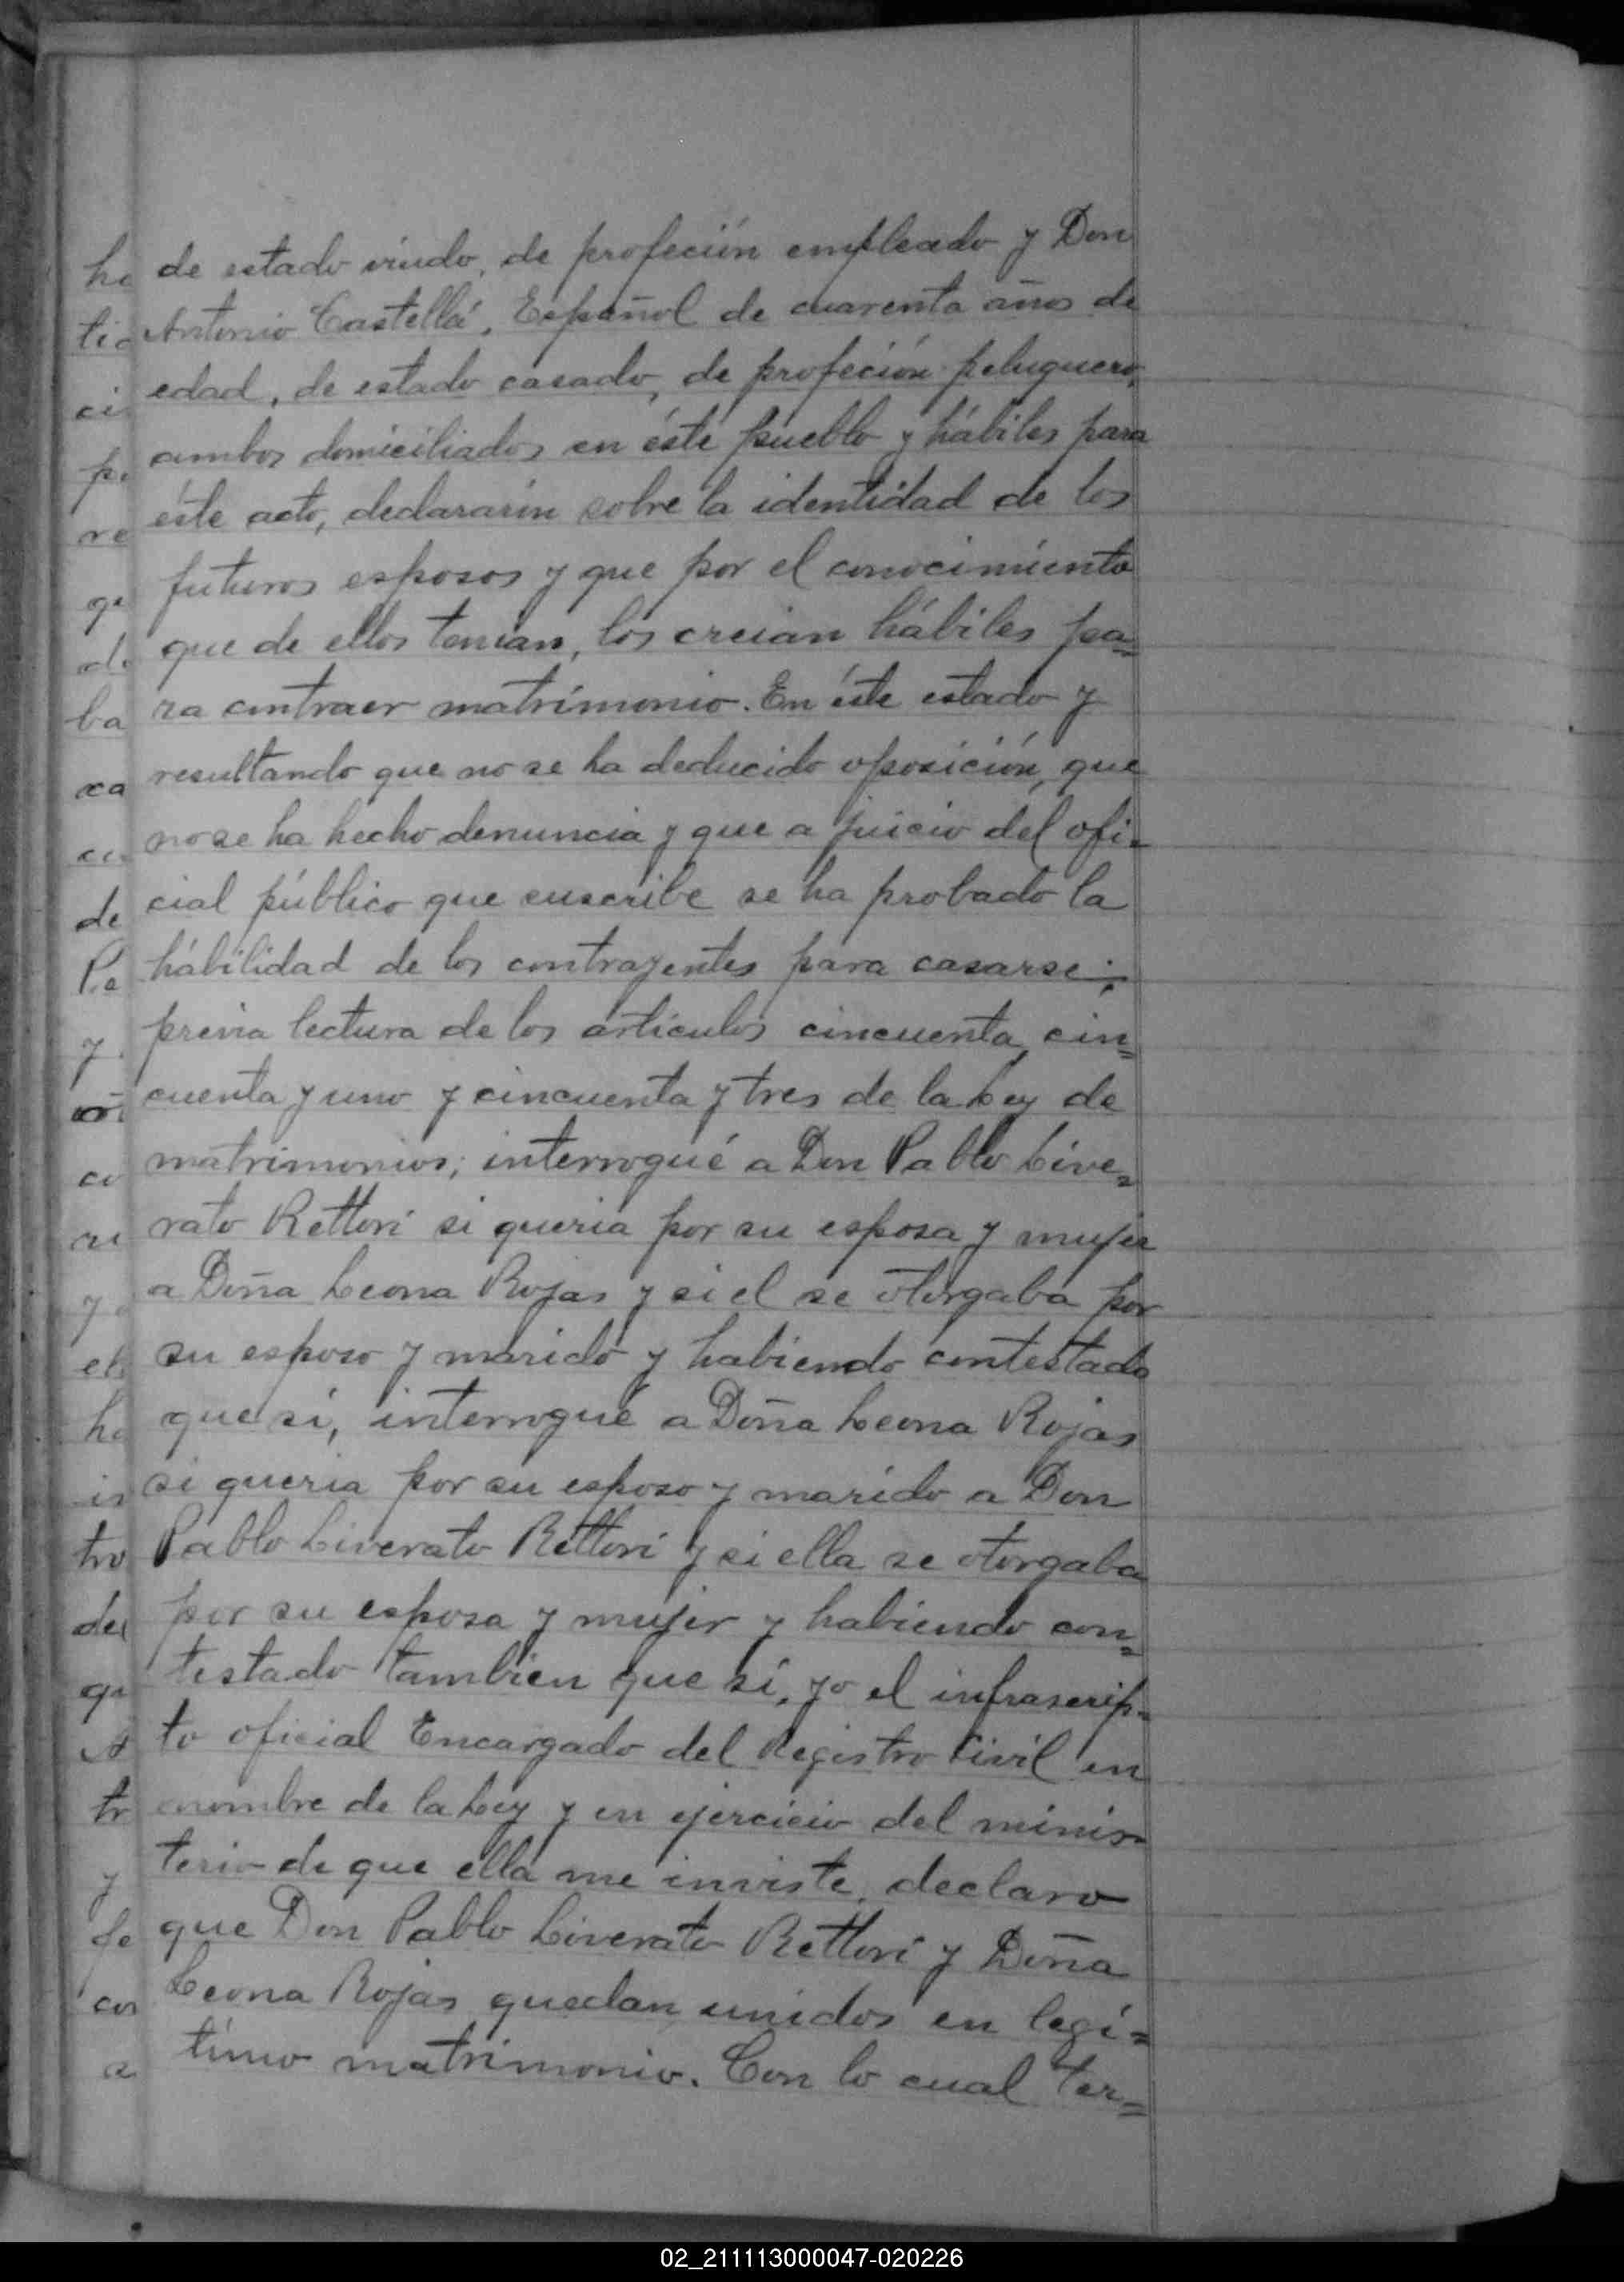 de estado viudo, de profeción empleado y Don
Antonio Castellá, Español de cuarenta años de
edad, de estado casado, de profeción peluquero,
ambos domiciliados en éste pueblo y hábiles para
éste acto, declararón sobre la identidad de los
futuros esposos y que por el conocimiento
que de ellos tenian, los creian hábiles pa=
ra contraer matrimonio. En éste estado y
resultando que no se ha deducido oposición, que
no se ha hecho denuncia y que a juicio del ofi=
cial público que suscribe se ha probado la
hábilidad de los contrayentes para casarse;
previa lectura de los artículos cincuenta, cin=
cuenta y uno y cincuenta y tres de la Ley de
matrimonios; interrogué a Don Pablo Live=
rato Rettori si queria por su esposa y mujer
a Doña Leona Rojas y si el se otorgaba por
su esposo y marido y habiendo contestado
que sí, interrogué a Doña Leona Rojas
si queria por su esposo y marido a Don
Pablo Liverato Rettori y si ella se otorgaba
por su esposa y mujer y habiendo con=
testado tambien que sí, yo el infrascrip=
to oficial Encargado del Registro Civil en
nombre de la Ley y en ejercicio del minis=
terio de que ella me inviste, declaro
que Don Pablo Liverato Rettori y Doña
Leona Rojas quedan unidos en legí=
timo matrimonio. Con lo cual ter=
02_211113000047-020226